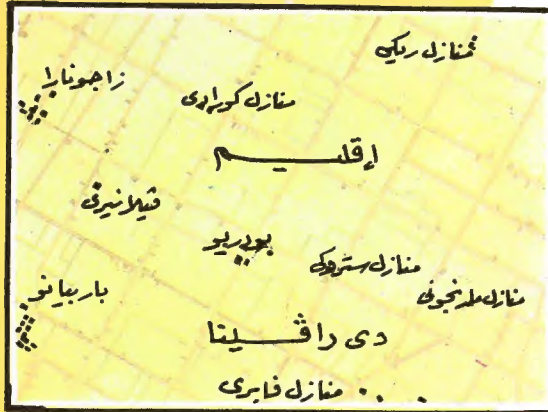 منازل ريكي
زاجونارا
منازل كورادى
إقليم
ڤيلانيرى
بودريو
منازل ستروكى
منازل ملدنجونى
باربيانو
دى راڤينا
منازل فابرى